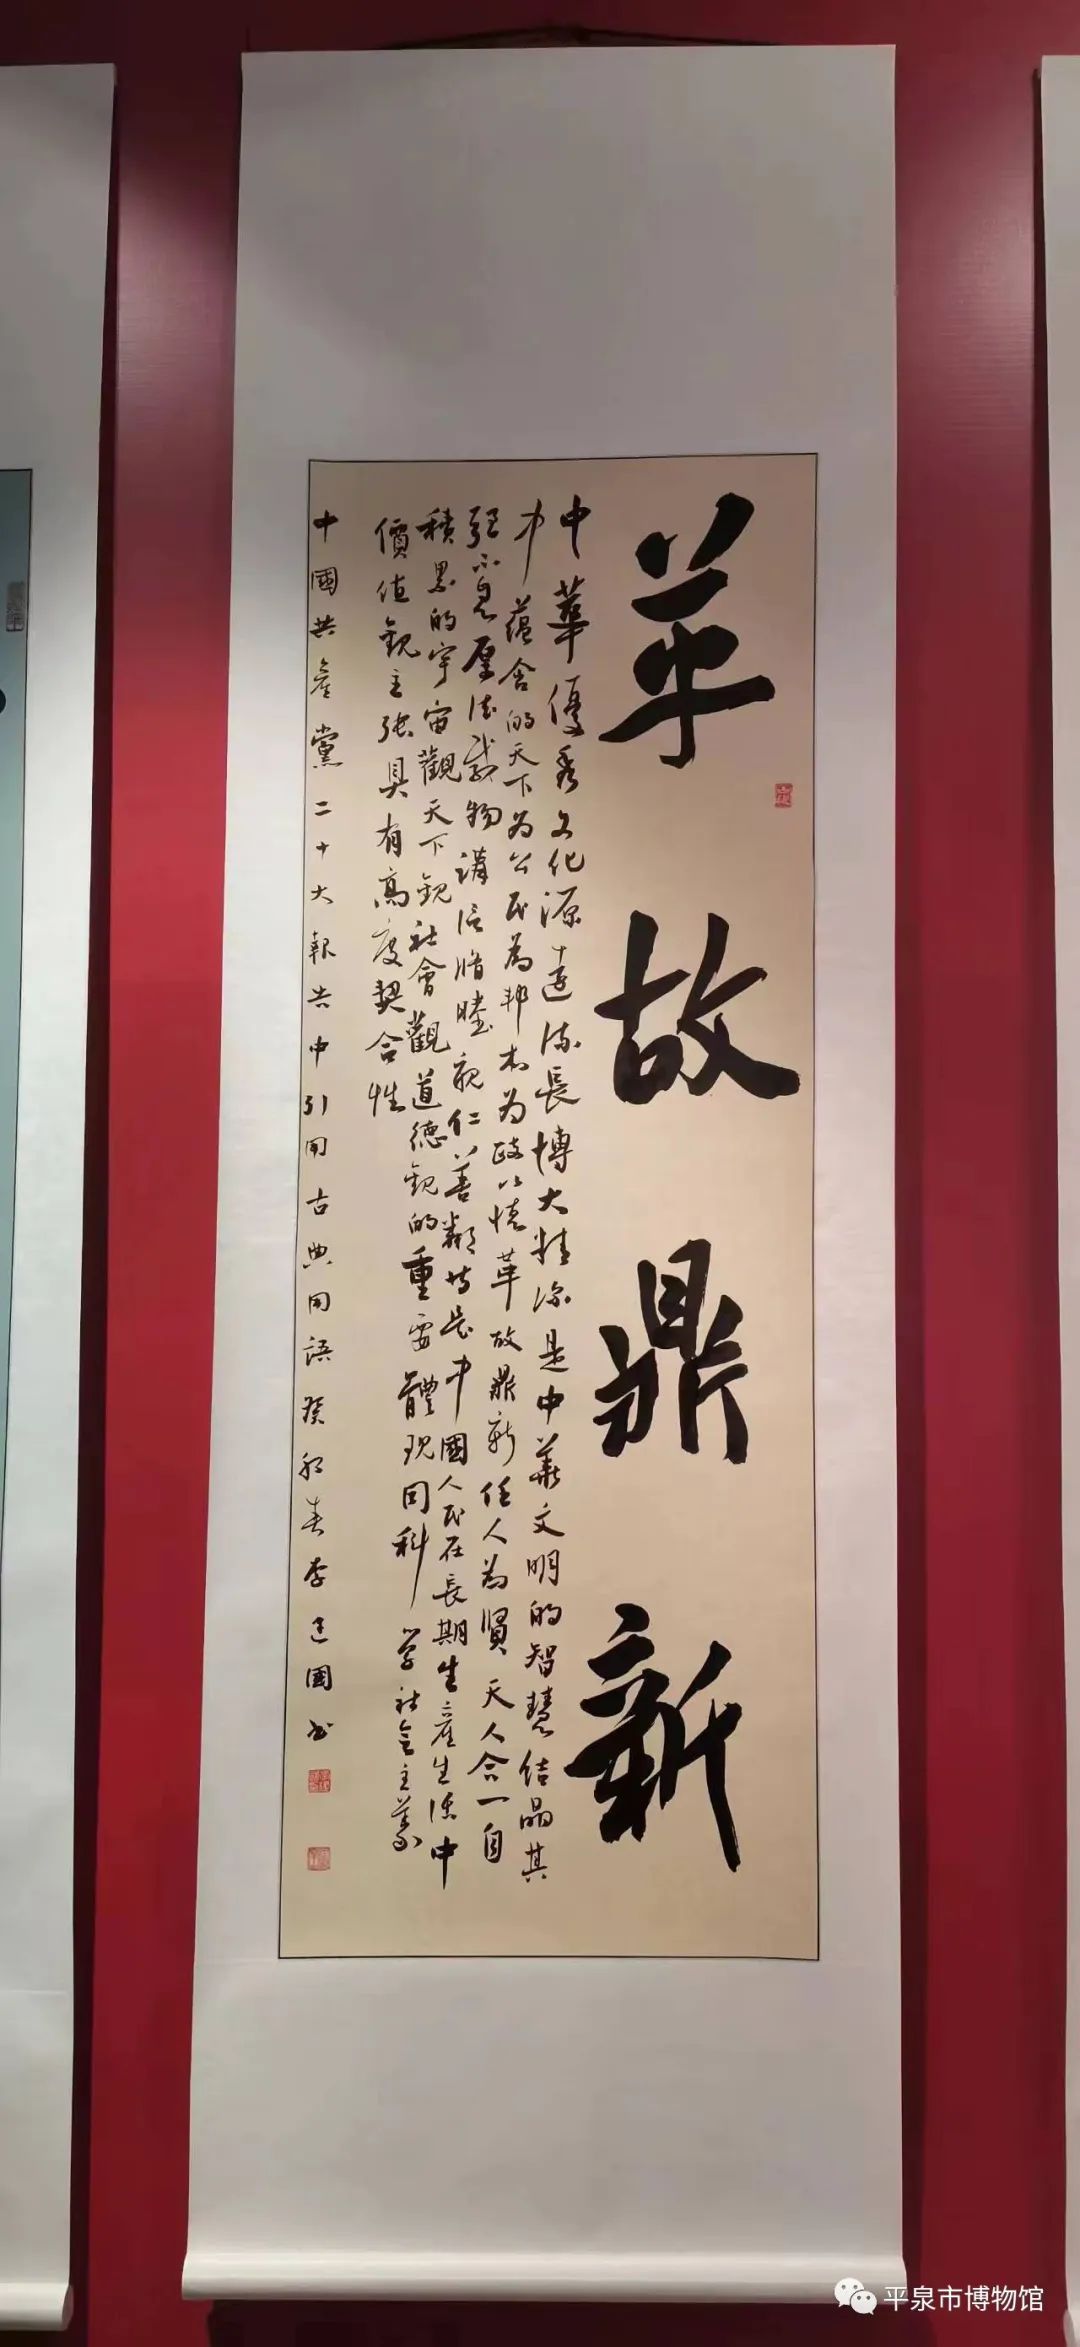 革故鼎新
中華優秀文化源遠流長博大精深是中華文明的智慧結晶其
中蘊含的天下为公民為邦本为政以德革故鼎新任人為賢天人合一自
強不息厚德載物講信脩睦親仁善鄰等是中國人民在長期生產生活中
積累的宇宙觀天下观社會觀道德观的重要體現同科学社会主義
價值观主張具有高度契合性
中國共產黨二十大報告中引用古典用語癸卯春李建國书
平泉市博物馆